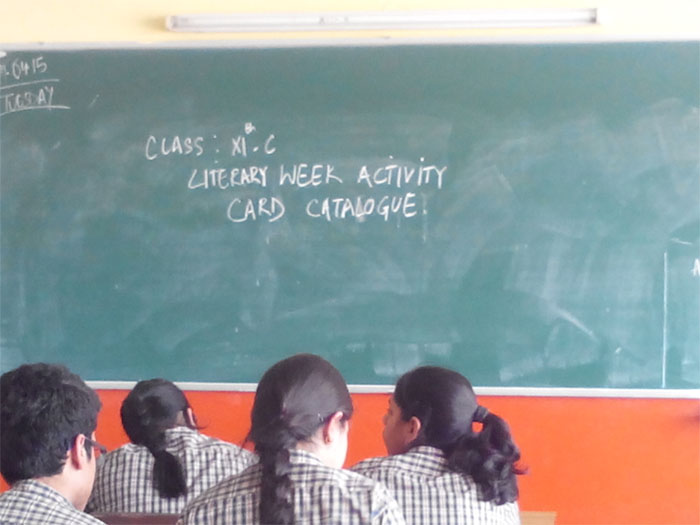 -0415
TUESDAY
CLASS : XIth - C
LITERARY WEEK ACTIVITY
CARD CATALOGUE.